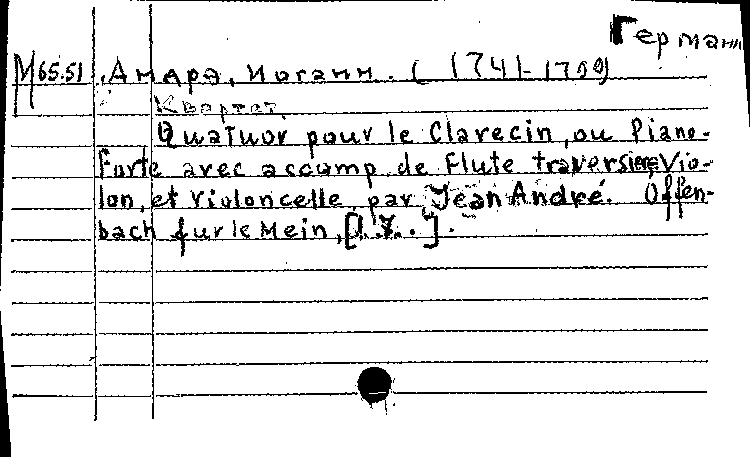 Германн
М65.51 Андрэ, Иоганн. (1741-1799)
Квартет.
Quatuor pour le Clavecin, ou Piano-
Forte avec accomp. de Flute traversiere, Vio-
lon, et Violoncelle, par Jean André. Offen-
bach fur le Mein,